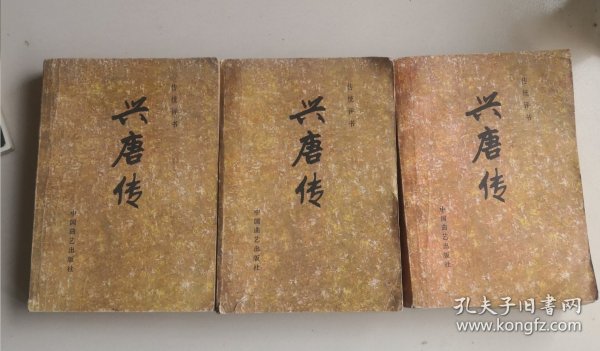 传统评书
兴唐传
中国曲艺出版社
传统评书
兴唐传
中国曲艺出版社
传统评书
兴唐传
中国曲艺出版社
孔夫子旧书网
www.kongfz.com